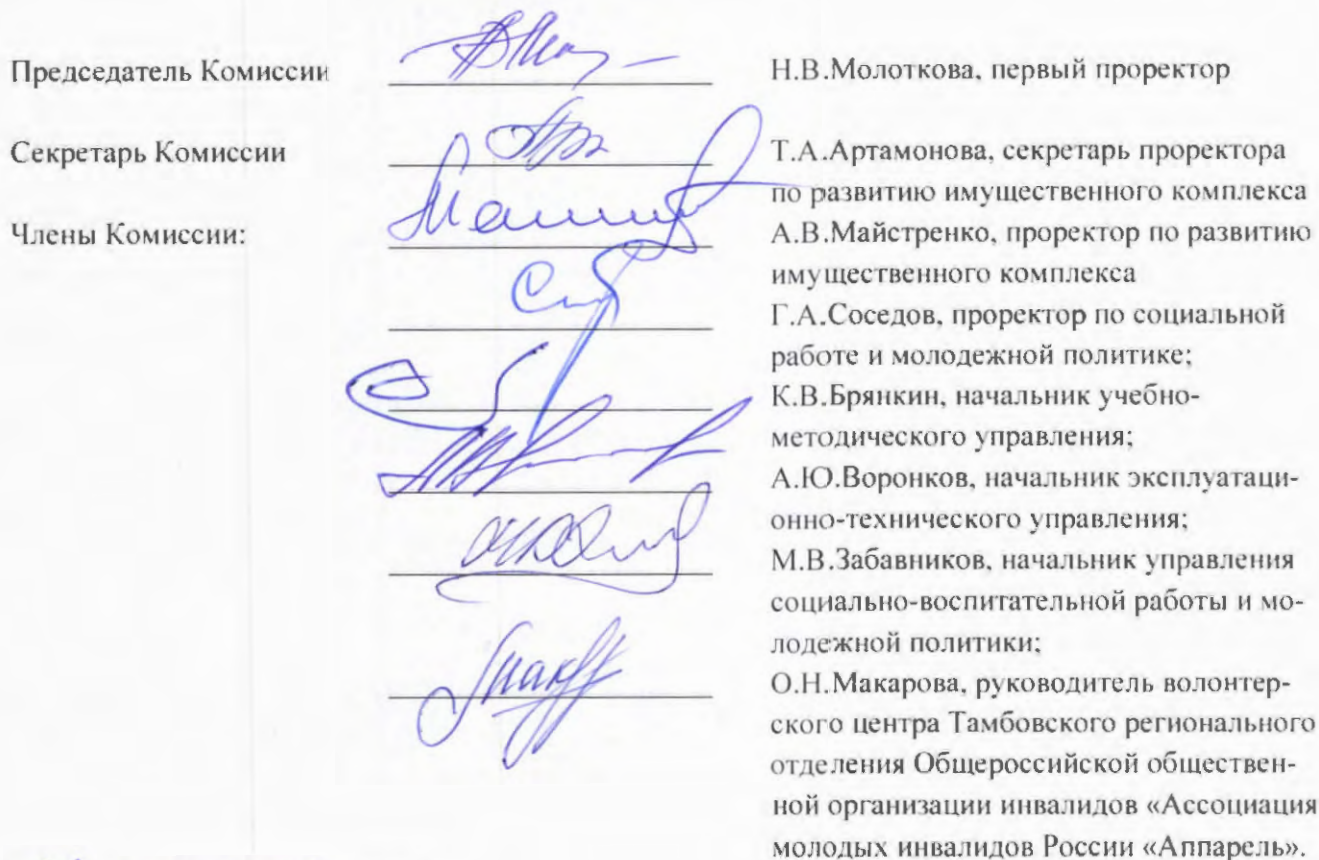 Председатель Комиссии Н.В.Молоткова, первый проректор
Секретарь Комиссии Т.А.Артамонова, секретарь проректора
по развитию имущественного комплекса
Члены Комиссии: А.В.Майстренко, проректор по развитию
имущественного комплекса
Г.А.Соседов, проректор по социальной
работе и молодежной политике;
К.В.Брянкин, начальник учебно-
методического управления;
А.Ю.Воронков, начальник эксплуатаци-
онно-технического управления;
М.В.Забавников, начальник управления
социально-воспитательной работы и мо-
лодежной политики;
О.Н.Макарова, руководитель волонтер-
ского центра Тамбовского регионального
отделения Общероссийской обществен-
ной организации инвалидов «Ассоциация
молодых инвалидов России «Аппарель».